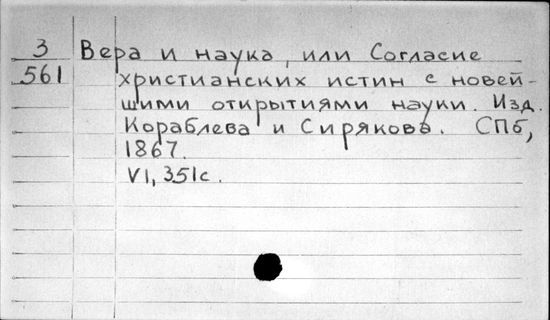 З Вера и наука, или Согласие
561 христианских истин с новей-
шими открытиями науки. Изд.
Кораблева и Сирякова. СПб,
1867.
VI, 351с.